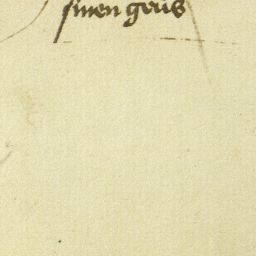 sinen gruͦs